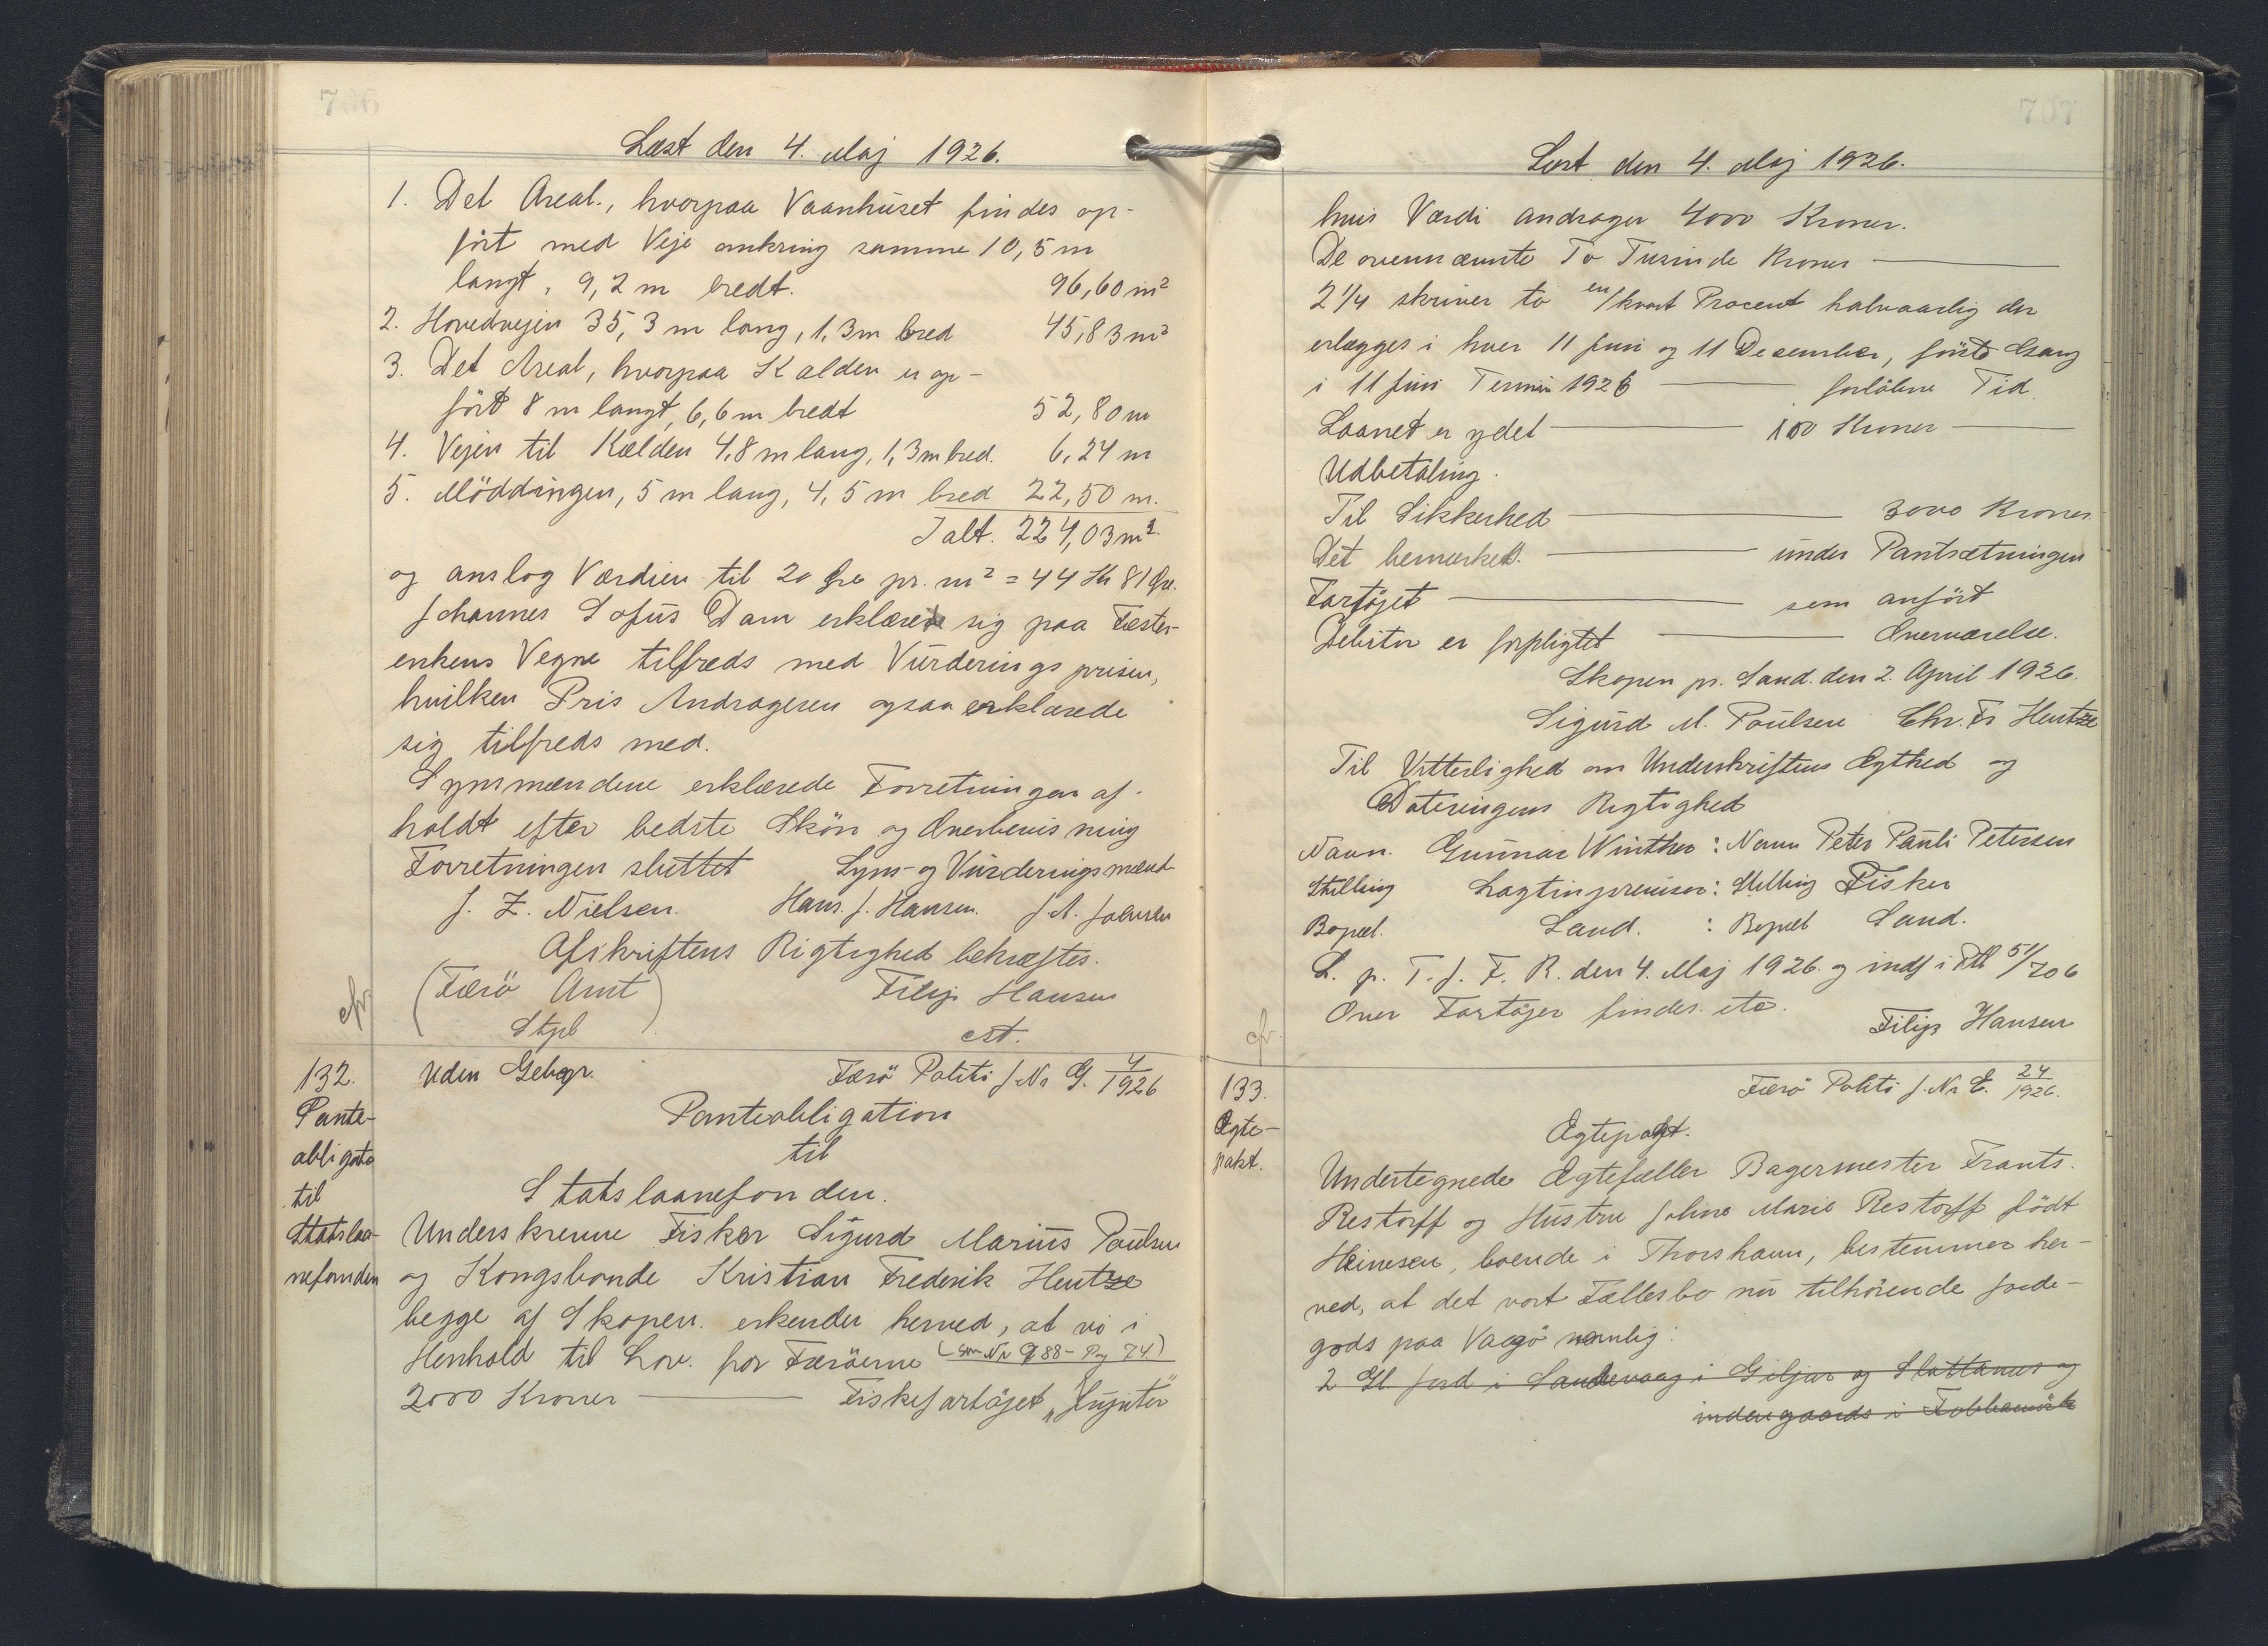 706
Læst den 4. Maj 1926.
1. Det Areal, hvorpaa Vaanhuset findes op-
ført med Veje omkring samme 10,5 m
langt, 9,2 m bredt. 96,60 m²
2. Hovedvejen 35,3 m lang, 1,3 m bred 45,83 m²
3. Det Areal, hvorpaa Kælden er op-
ført 8 m langt, 6,6 m bredt 52,80 m
4. Vejen til Kælden 4,8 m lang, 1,3 m bred. 6,24 m
5. Møddingen, 5 m lang, 4,5 m bred 22,50 m.
Ialt. 224,03 m².
og anslog Værdien til 20 Øre pr. m² = 44 Kr 81 Øre.
Johannes Sofus Dam erklærede sig paa Fæster-
enkens Vegne tilfreds med Vurderingsprisen,
hvilken Pris Andrageren ogsaa erklærede
sig tilfreds med.
Synsmændene erklærede Forretningen af-
holdt efter bedste Skøn og Overbevisning
Forretningen sluttet Syns- og Vurderingsmænd
J. Z. Nielsen. Hans. J. Hansen. J. A. Joensen
Afskriftens Rigtighed bekræftes.
(Færø Amt) Filip Hansen
Stpl cst.
cfr.
132. Uden Gebyr. Færø Politi J. Nr G. 4/1926
Pante-
obligato
til
Statslaa-
nefonden
Panteobligation
til
Statslaanefonden.
Underskrevne Fisker Sigurd Marius Poulsen
og Kongsbonde Kristian Frederik Hentze
begge af Skopen. erkender herved, at vi i
Henhold til Lov. for Færøerne (som Nr 988 - Pag 74.)
2000 Kroner ——— Fiskefartøjet „Jupiter"
707
Læst den 4. Maj 1926.
hvis Værdi andrager 4000 Kroner.
De ovennævnte To Tusinde Kroner ———
2 1/4 skriver to en/kvart Procent halvaarlig der
erlægges i hver 11 Juni og 11 December, første Gang
i 11 Juni Termin 1926 ——— forløbne Tid.
Laanet er ydet ——— 100 Kroner ———
Udbetaling.
Til Sikkerhed ——— 3000 Kroner.
Det bemærkes. ——— under Pantsætningen
Fartøjet ——— som anført
Debitor er forpligtet ——— Overværelse.
Skopen pr. Sand. den 2. April 1926.
Sigurd M. Poulsen Chr. Fr Hentze
Til Vitterlighed om Underskriftens Ægthed og
Dateringens Rigtighed
Navn. Gunnar Winther : Navn Peter Pauli Petersen
Stilling Lagtingsrevisor : Stilling Fisker
Bopæl. Sand. : Bopæl Sand.
L. p. T. f. F. R. den 4. Maj 1926. og indf i Ptb 51/706
Over Fartøjer findes. etc.
Filip Hansen
cfr.
133. Færø Politi J. Nr E. 24/1926.
Ægte-
pakt.
Ægtepagt.
Undertegnede Ægtefæller Bagermester Frants.
Restorff og Hustru Joline Marie Restorff født
Heinesen, boende i Thorshavn, bestemmer her-
ved, at det vort Fællesbo nu tilhørende Jorde-
gods paa Vaagø nemlig:
2 Gl. Jord i Sandevaag i Giljar og Slattanes og
indengaards i